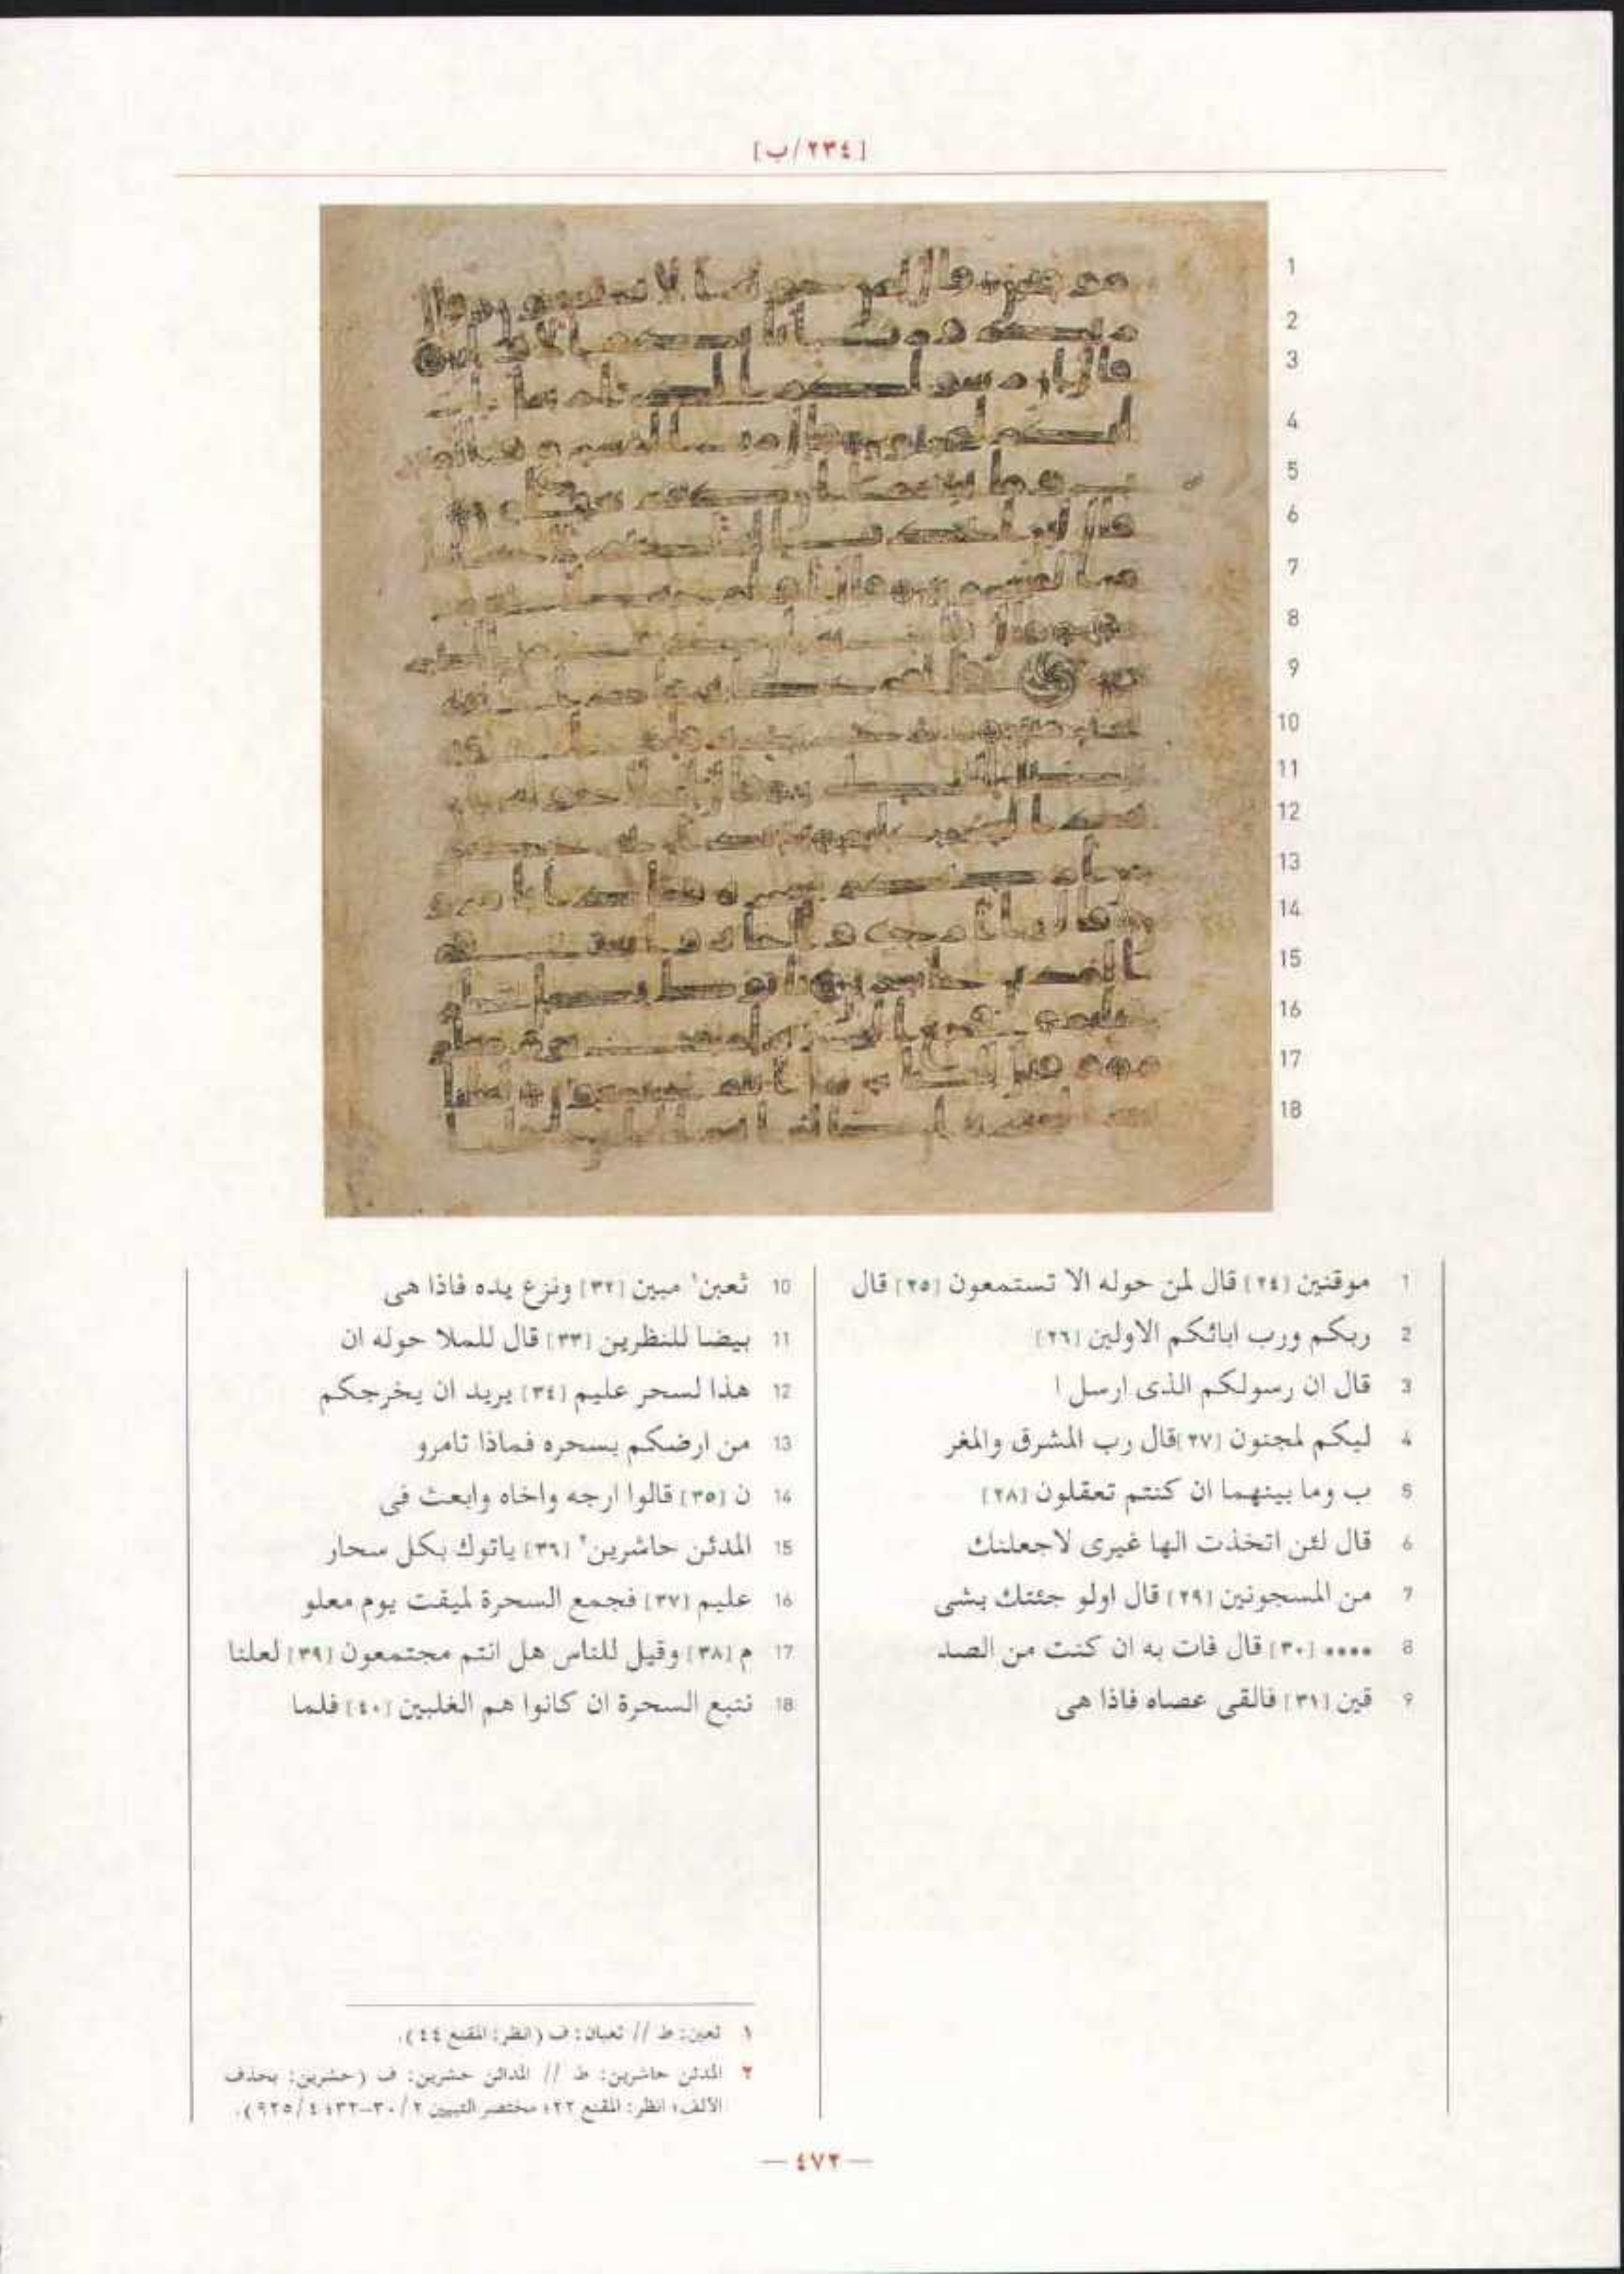 [٢٣٤/ب]
1 موقنين [٢٤] قال لمن حوله الا تستمعون [٢٥] قال
2 ربكم ورب ابائكم الاولين [٢٦]
3 قال ان رسولكم الذى ارسل ا
4 ليكم لمجنون [٢٧] قال رب المشرق والمغر
5 ب وما بينهما ان كنتم تعقلون [٢٨]
6 قال لئن اتخذت الها غيرى لاجعلنك
7 من المسجونين [٢٩] قال اولو جئتك بشى
8 •••• [٣٠] قال فات به ان كنت من الصد
9 قين [٣١] فالقى عصاه فاذا هى
10 ثعبن١ مبين [٣٢] ونزع يده فاذا هى
11 بيضا للنظرين [٣٣] قال للملا حوله ان
12 هذا لسحر عليم [٣٤] يريد ان يخرجكم
13 من ارضكم بسحره فماذا تامرو
14 ن [٣٥] قالوا ارجه واخاه وابعث فى
15 المدئن حاشرين٢ [٣٦] ياتوك بكل سحار
16 عليم [٣٧] فجمع السحرة لميقت يوم معلو
17 م [٣٨] وقيل للناس هل انتم مجتمعون [٣٩] لعلنا
18 نتبع السحرة ان كانوا هم الغلبين [٤٠] فلما
١ ثعبن: ط // ثعبان: ف (انظر: المقنع ٤٤).
٢ المدئن حاشرين: ط // المدائن حشرين: ف (حشرين: بحذف
الألف، انظر: المقنع ٢٢؛ مختصر التبيين ٢/ ٣٠-٣٢؛ ٤/ ٩٢٥).
— ٤٧٢ —